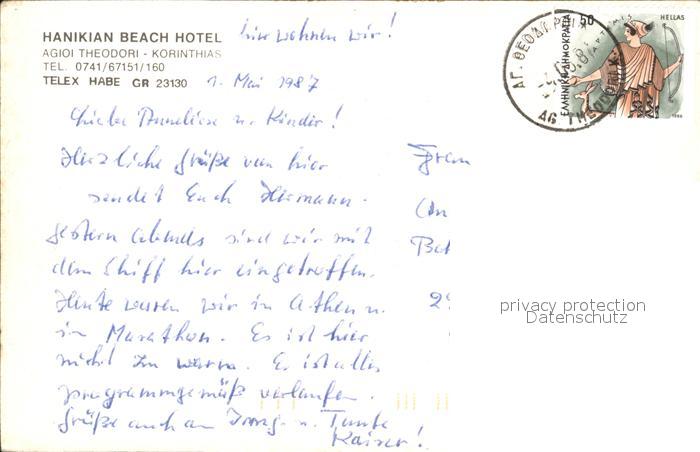 hier wohnen wir!
HANIKIAN BEACH HOTEL
AGIOI THEODORI - KORINTHIAS
TEL. 0741/67151/160
TELEX HABE GR 23130
1. Mai 1987
Liebe Anneliese u. Kinder!
Herzliche Grüße von hier
sendet Euch Hermann.
Gestern abends sind wir mit
dem Schiff hier eingetroffen.
Heute waren wir in Athen u.
in Marathon. Es ist hier
nicht zu warm. Es ist alles
programmgemäß verlaufen.
Grüße auch an u. Tante
Kaiser!
50
ΕΛΛΗΝΙΚΗ ΔΗΜΟΚΡΑΤΙΑ
ΑΡΤΕΜΙΣ
HELLAS
1986
ΑΓ. ΘΕΟΔΩΡΟΙ
AG THEODOROI
Frau
2
privacy protection
Datenschutz